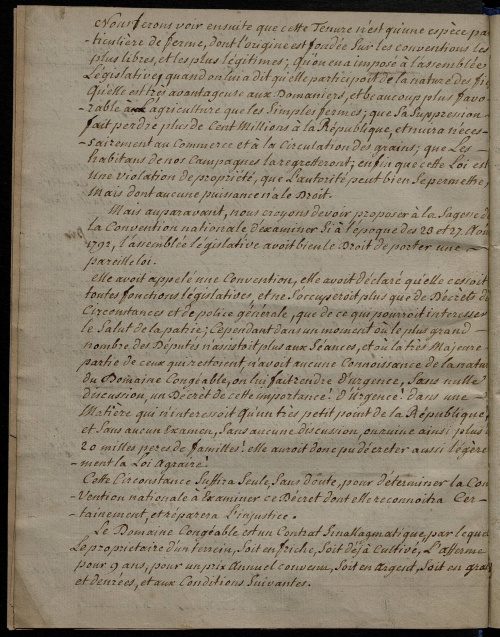 Nous ferons voir ensuite que cette Tenure n'est qu'une espèce par
-ticuliere de ferme, dont l'origine est fondée sur les conventions les
plus libres, et les plus légitimes; qu'on en a imposé à l'assemblée
Législative, quand on lui a dit qu'elle participoit de la nature des fie
qu'elle est très avantageuse aux Domaniers, et beaucoup plus favo-
-rable à l'agriculture que les simples fermes; que sa suppression
fait perdre plus de Cent Millions à la République, et nuira neces-
-sairement au Commerce et à la Circulation des grains; que Les
habitans de nos Campagnes la regretteront; enfin que cette Loi est
une violation de propriété, que l'autorité peut bien se permettre,
mais dont aucune puissance n'a le Droit.
Mais auparavant, nous croyons devoir proposer à la Sagesse de
la Convention nationale d'examiner si à l'époque des 23 et 27 Aout
1792, l'assemblée législative avoit bien le Droit de porter une
pareille loi.
elle avoit appelé une Convention, elle avoit déclaré qu'elle cessoit
toutes fonctions législatives, et ne s'occuperoit plus que de Décrets de
Circonstances et de police générale, que de ce qui pourroit interesser
le Salut de la patrie; Cependant dans un moment où le plus grand
nombre des Députés n'assistoit plus aux Séances, et où la très Majeure
partie de ceux qui restoient, n'avoit aucune Connoissance de la natur
du Domaine Congéable, on lui fait rendre d'Urgence, sans nulle
discussion, un Décret de cette importance! D'urgence! dans une
Matière qui n'interessoit qu'un très petit point de la République,
et Sans aucun Examen, Sans aucune discussion, on ruine ainsi plus
20 milles peres de familles! elle auroit donc pu décréter aussi légère
-ment la Loi Agraire!
Cette Circonstance Suffira Seule, Sans doute, pour déterminer la Con
-vention nationale à Examiner ce Décret dont elle reconnoitra Cer-
-tainement, et réparera L'injustice.
Le Domaine Congéable est un Contrat Sinallagmatique, par leque
Le proprietaire d'un terrein, Soit en friche, Soit déjà Cultivé, L'afferme
pour 9 ans, pour un prix Annuel convenu, Soit en Argent, Soit en grai
et denrées, et aux Conditions Suivantes.